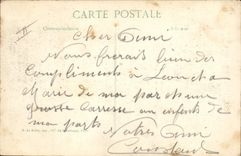 CARTE POSTALE
Correspondance
Cher Ami
Vous ferais bien des
Compliments à Léon et a
Marie de ma part et une
grosse Caresse au enfants de
ma part
Votre Ami
Constant